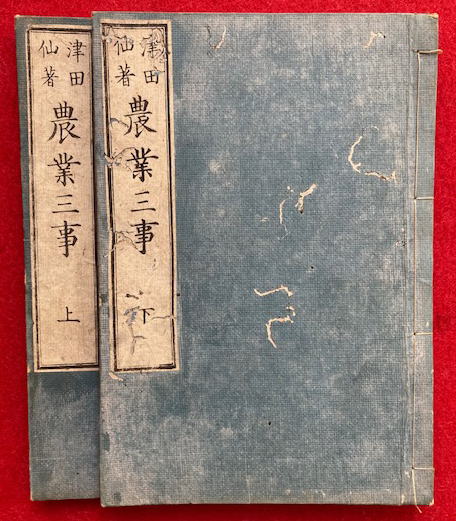 津田
仙著
農業三事
上
津田
仙著
農業三事
下